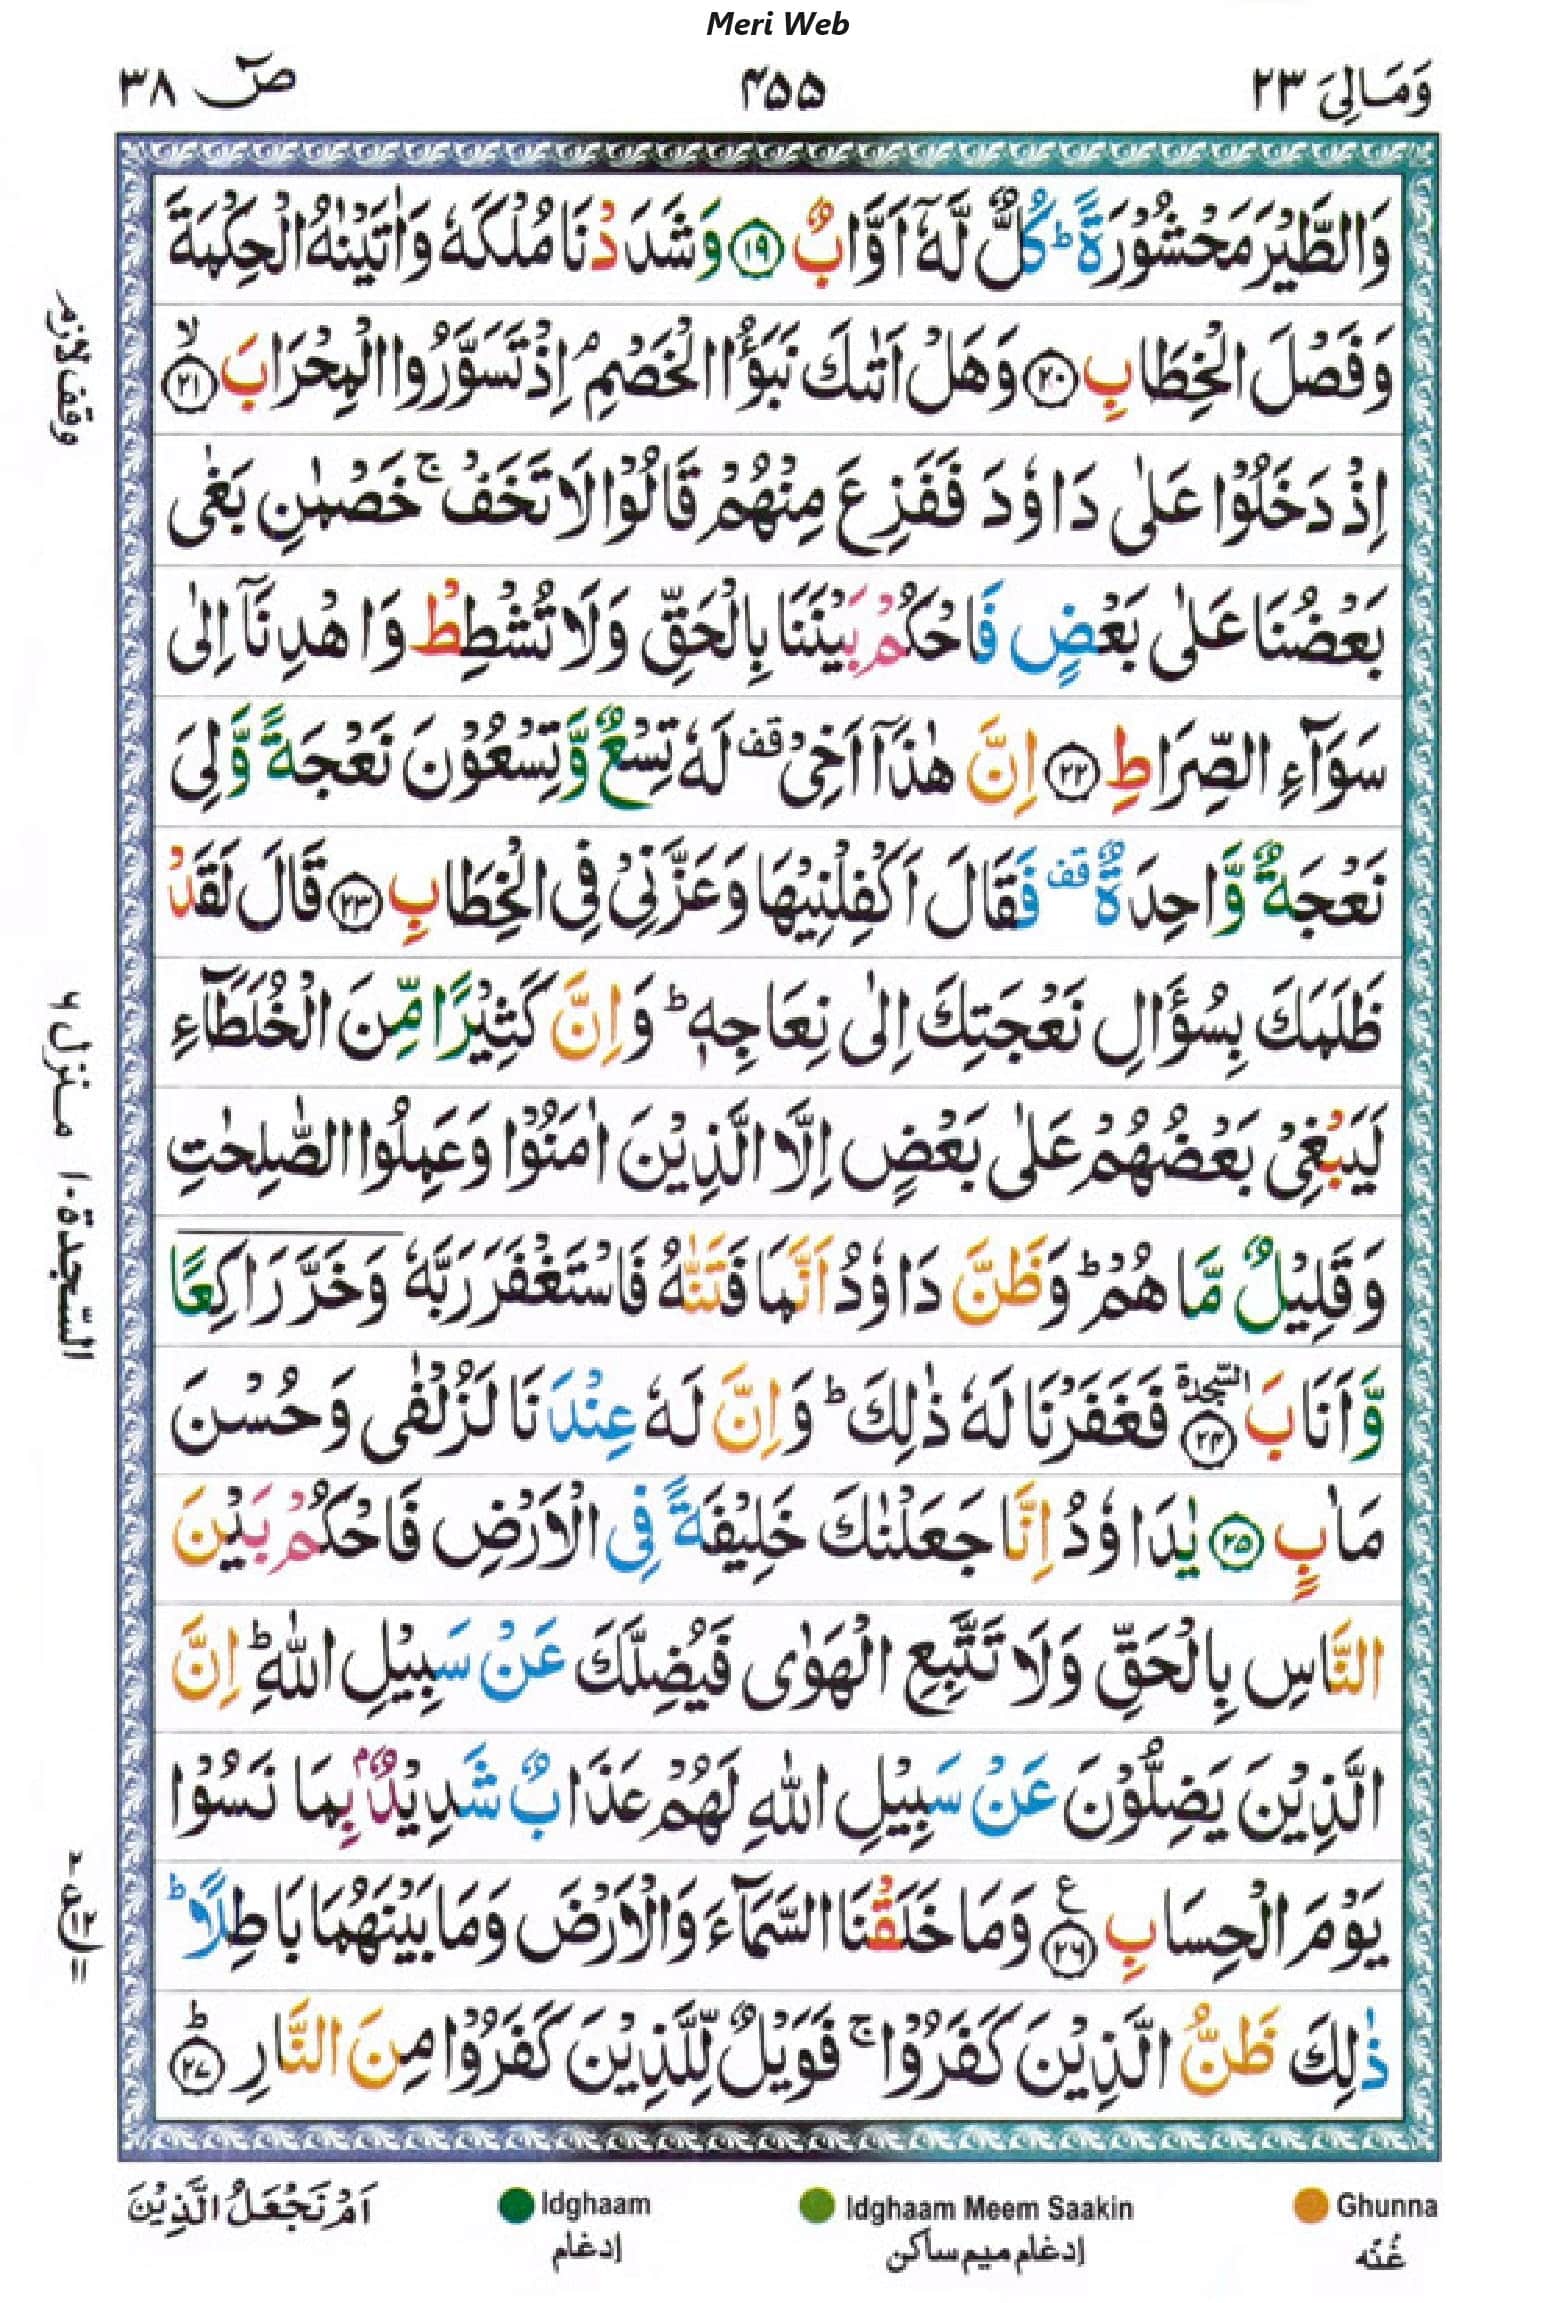 Meri Web
وَمَالِىَ ٢٣
۴۵۵
صٓ ٣٨
وَالطَّيْرَ مَحْشُوْرَةً ؕ كُلٌّ لَّهٗۤ اَوَّابٌ ﴿۱۹﴾ وَشَدَدْنَا مُلْكَهٗ وَاٰتَيْنٰهُ الْحِكْمَةَ
وَفَصْلَ الْخِطَابِ ﴿۲۰﴾ وَهَلْ اَتٰىكَ نَبَؤُا الْخَصْمِ ۘ اِذْ تَسَوَّرُوا الْمِحْرَابَ ۙ﴿۲۱﴾
وقف لازم
اِذْ دَخَلُوْا عَلٰى دَاوٗدَ فَفَزِعَ مِنْهُمْ قَالُوْا لَا تَخَفْ ۚ خَصْمٰنِ بَغٰى
بَعْضُنَا عَلٰى بَعْضٍ فَاحْكُمْ بَيْنَنَا بِالْحَقِّ وَلَا تُشْطِطْ وَاهْدِنَاۤ اِلٰى
سَوَآءِ الصِّرَاطِ ﴿۲۲﴾ اِنَّ هٰذَاۤ اَخِىْ قف لَهٗ تِسْعٌ وَّتِسْعُوْنَ نَعْجَةً وَّلِىَ
نَعْجَةٌ وَّاحِدَةٌ قف فَقَالَ اَكْفِلْنِيْهَا وَعَزَّنِىْ فِى الْخِطَابِ ﴿۲۳﴾ قَالَ لَقَدْ
ظَلَمَكَ بِسُؤَالِ نَعْجَتِكَ اِلٰى نِعَاجِهٖ ؕ وَاِنَّ كَثِيْرًا مِّنَ الْخُلَطَآءِ
لَيَبْغِىْ بَعْضُهُمْ عَلٰى بَعْضٍ اِلَّا الَّذِيْنَ اٰمَنُوْا وَعَمِلُوا الصّٰلِحٰتِ
منزل ۶
السّجدة ۱۰
وَقَلِيْلٌ مَّا هُمْ ؕ وَظَنَّ دَاوٗدُ اَنَّمَا فَتَنّٰهُ فَاسْتَغْفَرَ رَبَّهٗ وَخَرَّ رَاكِعًا
وَّاَنَابَ السّجدة ﴿۲۴﴾ فَغَفَرْنَا لَهٗ ذٰلِكَ ؕ وَاِنَّ لَهٗ عِنْدَنَا لَزُلْفٰى وَحُسْنَ
مَاٰبٍ ﴿۲۵﴾ يٰدَاوٗدُ اِنَّا جَعَلْنٰكَ خَلِيْفَةً فِى الْاَرْضِ فَاحْكُمْ بَيْنَ
النَّاسِ بِالْحَقِّ وَلَا تَتَّبِعِ الْهَوٰى فَيُضِلَّكَ عَنْ سَبِيْلِ اللّٰهِ ؕ اِنَّ
الَّذِيْنَ يَضِلُّوْنَ عَنْ سَبِيْلِ اللّٰهِ لَهُمْ عَذَابٌ شَدِيْدٌۢ بِمَا نَسُوْا
يَوْمَ الْحِسَابِ ﴿۲۶﴾ ع وَمَا خَلَقْنَا السَّمَآءَ وَالْاَرْضَ وَمَا بَيْنَهُمَا بَاطِلًا ؕ
ذٰلِكَ ظَنُّ الَّذِيْنَ كَفَرُوْا ۚ فَوَيْلٌ لِّلَّذِيْنَ كَفَرُوْا مِنَ النَّارِ ؕ﴿۲۷﴾
Ghunna
غُنّه
Idghaam Meem Saakin
إدغام ميم ساكن
Idghaam
إدغام
اَمْ نَجْعَلُ الَّذِيْنَ